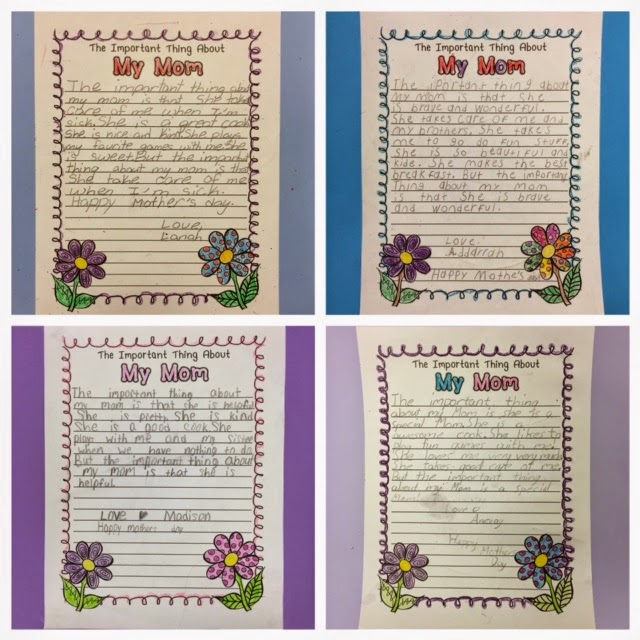 The Important Thing About
My Mom
The important thing about
my mom is that she take
care of me when I'm
sick. She is a great cook
She is nice and kind. She plays
my favrite games with me. She
is sweet. But the important
thing about my mom is that
She take care of me
when I'm sick.
Happy Mother's day.
Love,
The Important Thing About
My Mom
The iportant thing about
My mom is that She
is brave and wonderful.
She takes care of me and
my brothers. She takes
me to go do fun stuff.
She is so beautiful and
kide. She makes the best
breakfast. But the important
Thing about my mom
is that She is brave
and wonderful.
Love.
Addarrah
Happy Mothe's
The Important Thing About
My Mom
The important thing about
my mom is that she is helpful
She is pretty. She is kind
She is a good cook. She
plays with me and my sisster
when we have nothing to do.
But the important thing about
my mom is that she is
helpful.
Love Madison
Happy mothers day
The Important Thing About
My Mom
The important thing
about my Mom is she is a
special Mom. She is a
awesome cook. She likes to
play fun games with me.
She loves me very very much.
She takes good care of me.
But the important thing
about my Mom is a special
Mom!
Love
Happy
Mothers
Day